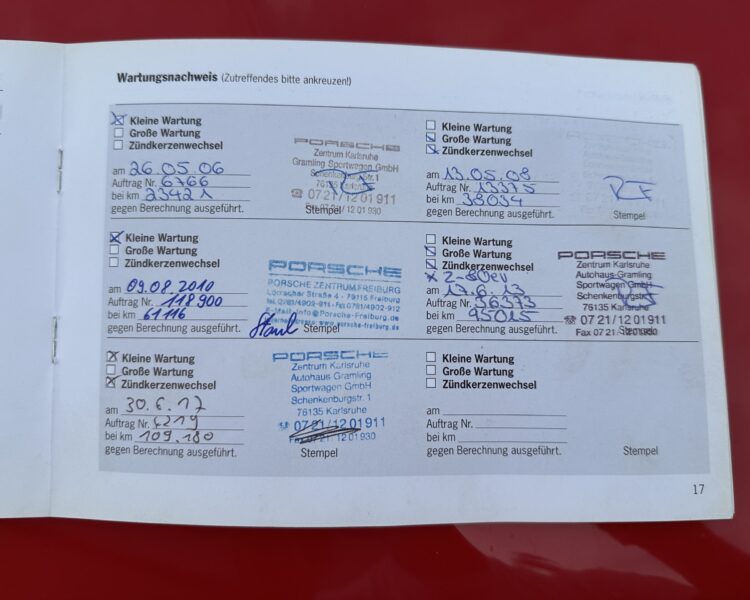 Wartungsnachweis (Zutreffendes bitte ankreuzen!)
Kleine Wartung
Große Wartung
Zündkerzenwechsel
am 26.05.06
Auftrag Nr. 6766
bei km 23421
gegen Berechnung ausgeführt.
PORSCHE
Zentrum Karlsruhe
Gramling Sportwagen GmbH
Schenkenburgstr.1
76135 Karlsruhe
☎ 07 21/12 01 911
Fax 07 21/12 01 930
Stempel
Kleine Wartung
Große Wartung
Zündkerzenwechsel
am 13.05.08
Auftrag Nr. 13375
bei km 38034
gegen Berechnung ausgeführt.
Stempel
Kleine Wartung
Große Wartung
Zündkerzenwechsel
am 09.08.2010
Auftrag Nr. 118900
bei km 61116
gegen Berechnung ausgeführt.
PORSCHE
PORSCHE ZENTRUM FREIBURG
Lörracher Straße 4 - 79115 Freiburg
Tel. 0761/4902-911 - Fax 0761/4902-912
E-Mail: info@Porsche-Freiburg.de
www.porsche-freiburg.de
Stempel
Kleine Wartung
Große Wartung
Zündkerzenwechsel
am 19.6.13
Auftrag Nr. 36373
bei km 95015
gegen Berechnung ausgeführt.
PORSCHE
Zentrum Karlsruhe
Autohaus Gramling
Sportwagen GmbH
Schenkenburgstr. 1
76135 Karlsruhe
☎ 07 21/12 01 911
Fax 07 21/12 01 930
Stempel
Kleine Wartung
Große Wartung
Zündkerzenwechsel
am 30.6.17
Auftrag Nr. 4219
bei km 109.180
gegen Berechnung ausgeführt.
PORSCHE
Zentrum Karlsruhe
Autohaus Gramling
Sportwagen GmbH
Schenkenburgstr. 1
76135 Karlsruhe
☎ 07 21/12 01 911
Fax 07 21/12 01 930
Stempel
Kleine Wartung
Große Wartung
Zündkerzenwechsel
am
Auftrag Nr.
bei km
gegen Berechnung ausgeführt.
Stempel
17